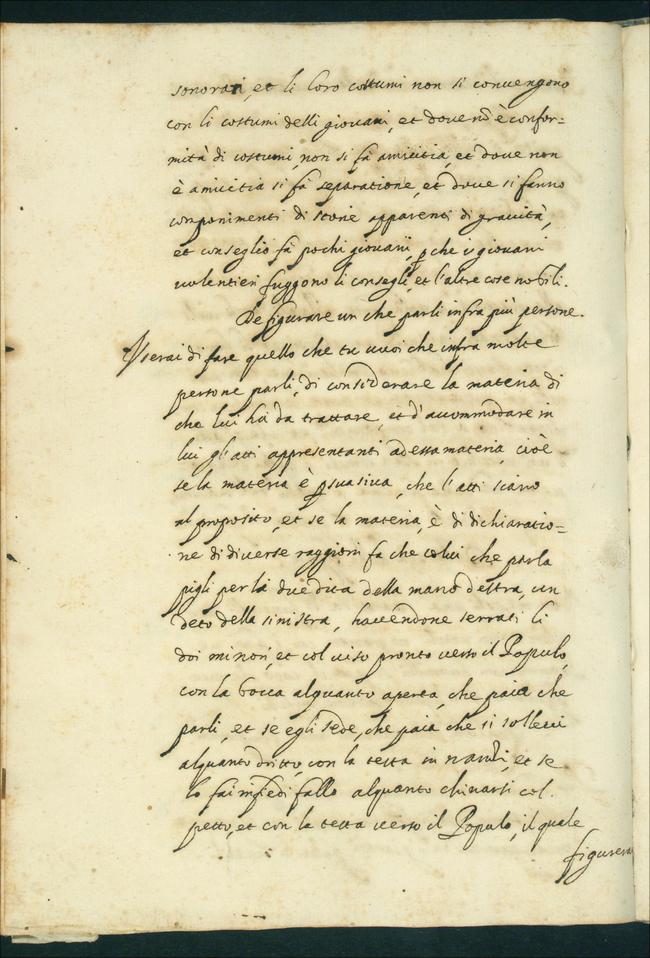 sonorati, et li loro costumi non si convengono
con li costumi delli giovani, et dove nõ è confor=
mità di costumi, non si fà amicitia, et dove non
è amicitia si fà separatione, et dove si fanno
componimenti di storie apparenti di gravità,
et conseglio fà pochi giovani, p̱che i giovani
volentieri fuggono li consegli, et l'altre cose nobili.
De figurare un che parli infra più persone.
Userai di fare quello che tu vuoi che infra molte
persone parli, di considerare la materia di
che lui hà da trattare, et d'accommodare in
lui gl'atti appresentanti ad essa materia, cioè
se la materia è p̱suasiva, che l'atti siano
al proposito, et se la materia, è di dichiaratio=
ne di diverse raggioni fa che colui che parla
pigli per la due dita della mano destra, un
deto della sinistra, havendone serrati li
doi minori, et col viso pronto verso il Populo,
con la bocca alquanto aperta, che paia che
parli, et se egli sede, che paia che si sollevi
alquanto dritto, con la testa in nanzi, et se
lo fai in piedi fallo alquanto chinarsi col
petto, et con la testa verso il Populo, il quale
figurerai